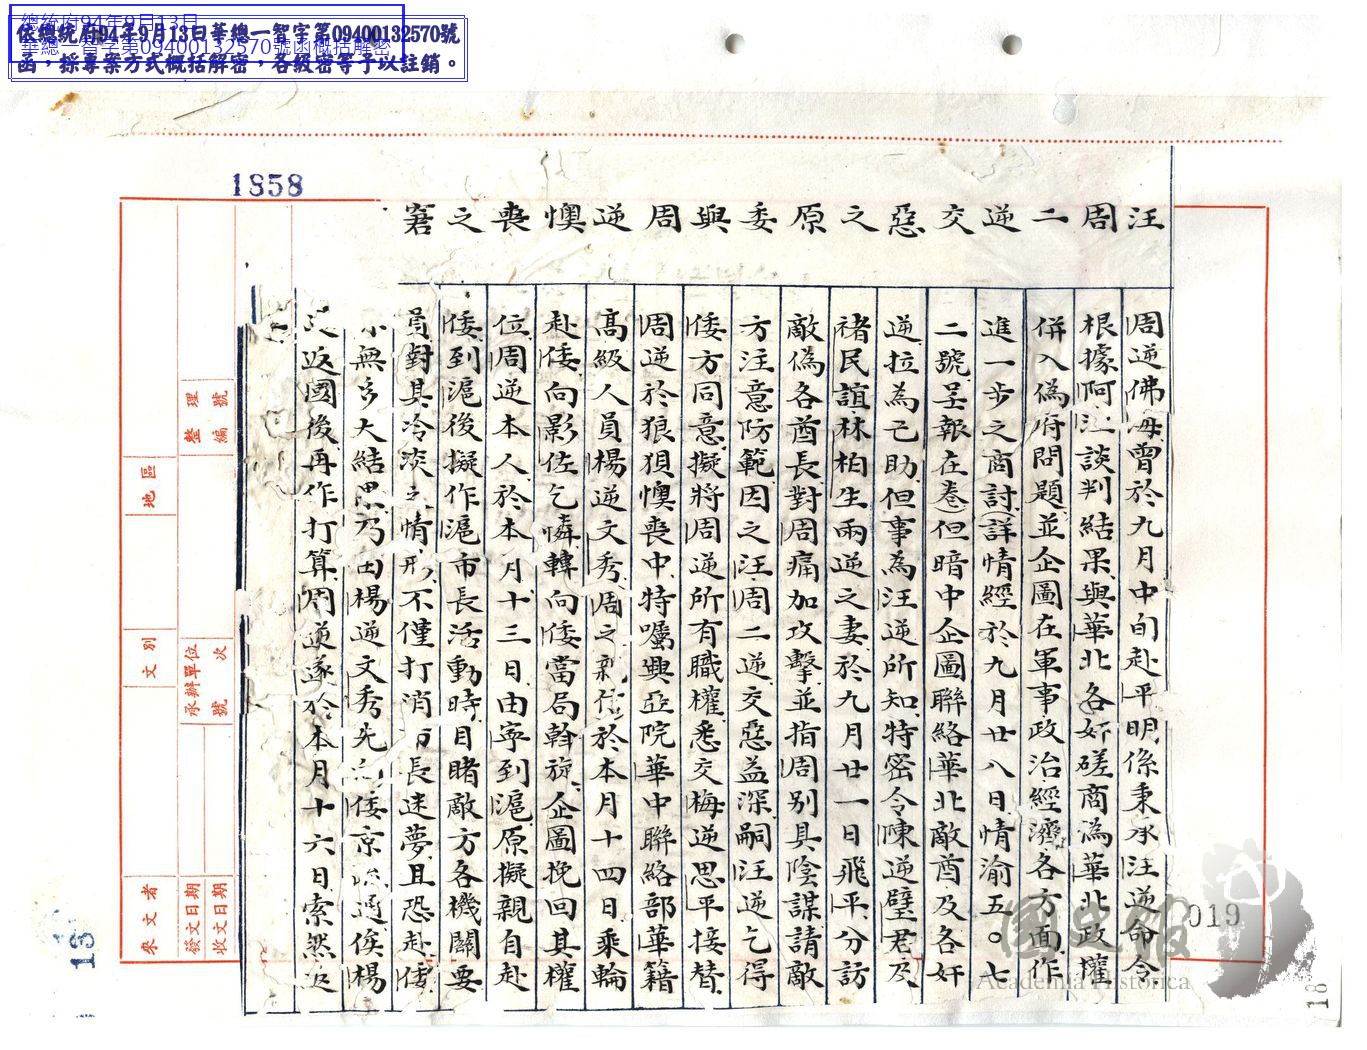 總統府94年9月13日
華總一智字第09400132570號函概括解密
依總統府94年9月13日華總一智字第09400132570號
函，採專案方式概括解密，各級密等予以註銷。
1858
汪周二逆交惡之原委與周逆懊喪之窘
周逆佛海曾於九月中旬赴平明係秉承汪逆命令
根據阿汪談判結果與華北各奸磋商為華北政權
併入偽府問題並企圖在軍事政治經濟各方面作
進一步之商討(詳情經於九月廿八日情渝五〇七
二號呈報在卷)但暗中企圖聯絡華北敵酋及各奸
逆拉為己助但事為汪逆所知特密令陳逆璧君及
褚民誼林柏生兩逆之妻於九月廿一日飛平分訪
敵偽各酋長對周痛加攻擊並指周別具陰謀請敵
方注意防範因之汪周二逆交惡益深嗣汪逆乞得
倭方同意擬將周逆所有職權悉交梅逆思平接替
周逆於狼狽懊喪中特囑興亞院華中聯絡部華籍
高級人員楊逆文秀周之親信於本月十四日乘輪
赴倭向影佐乞憐韓向倭當局斡旋企圖挽回其權
位周逆本人於本月十三日由寧到滬原擬親自赴
倭到滬後擬作滬市長活動時目睹敵方各機關要
員對其冷淡之情形不僅打消市長迷夢且恐赴倭
無多大結果乃由楊逆文秀先赴倭京疏通俟楊
逆返國後再作打算周逆遂於本月十六日索然返
整理
編號
地區
文別
承辦單位
次號
來文者
發文日期
收文日期
13
019
18
國史館
Academia Historica